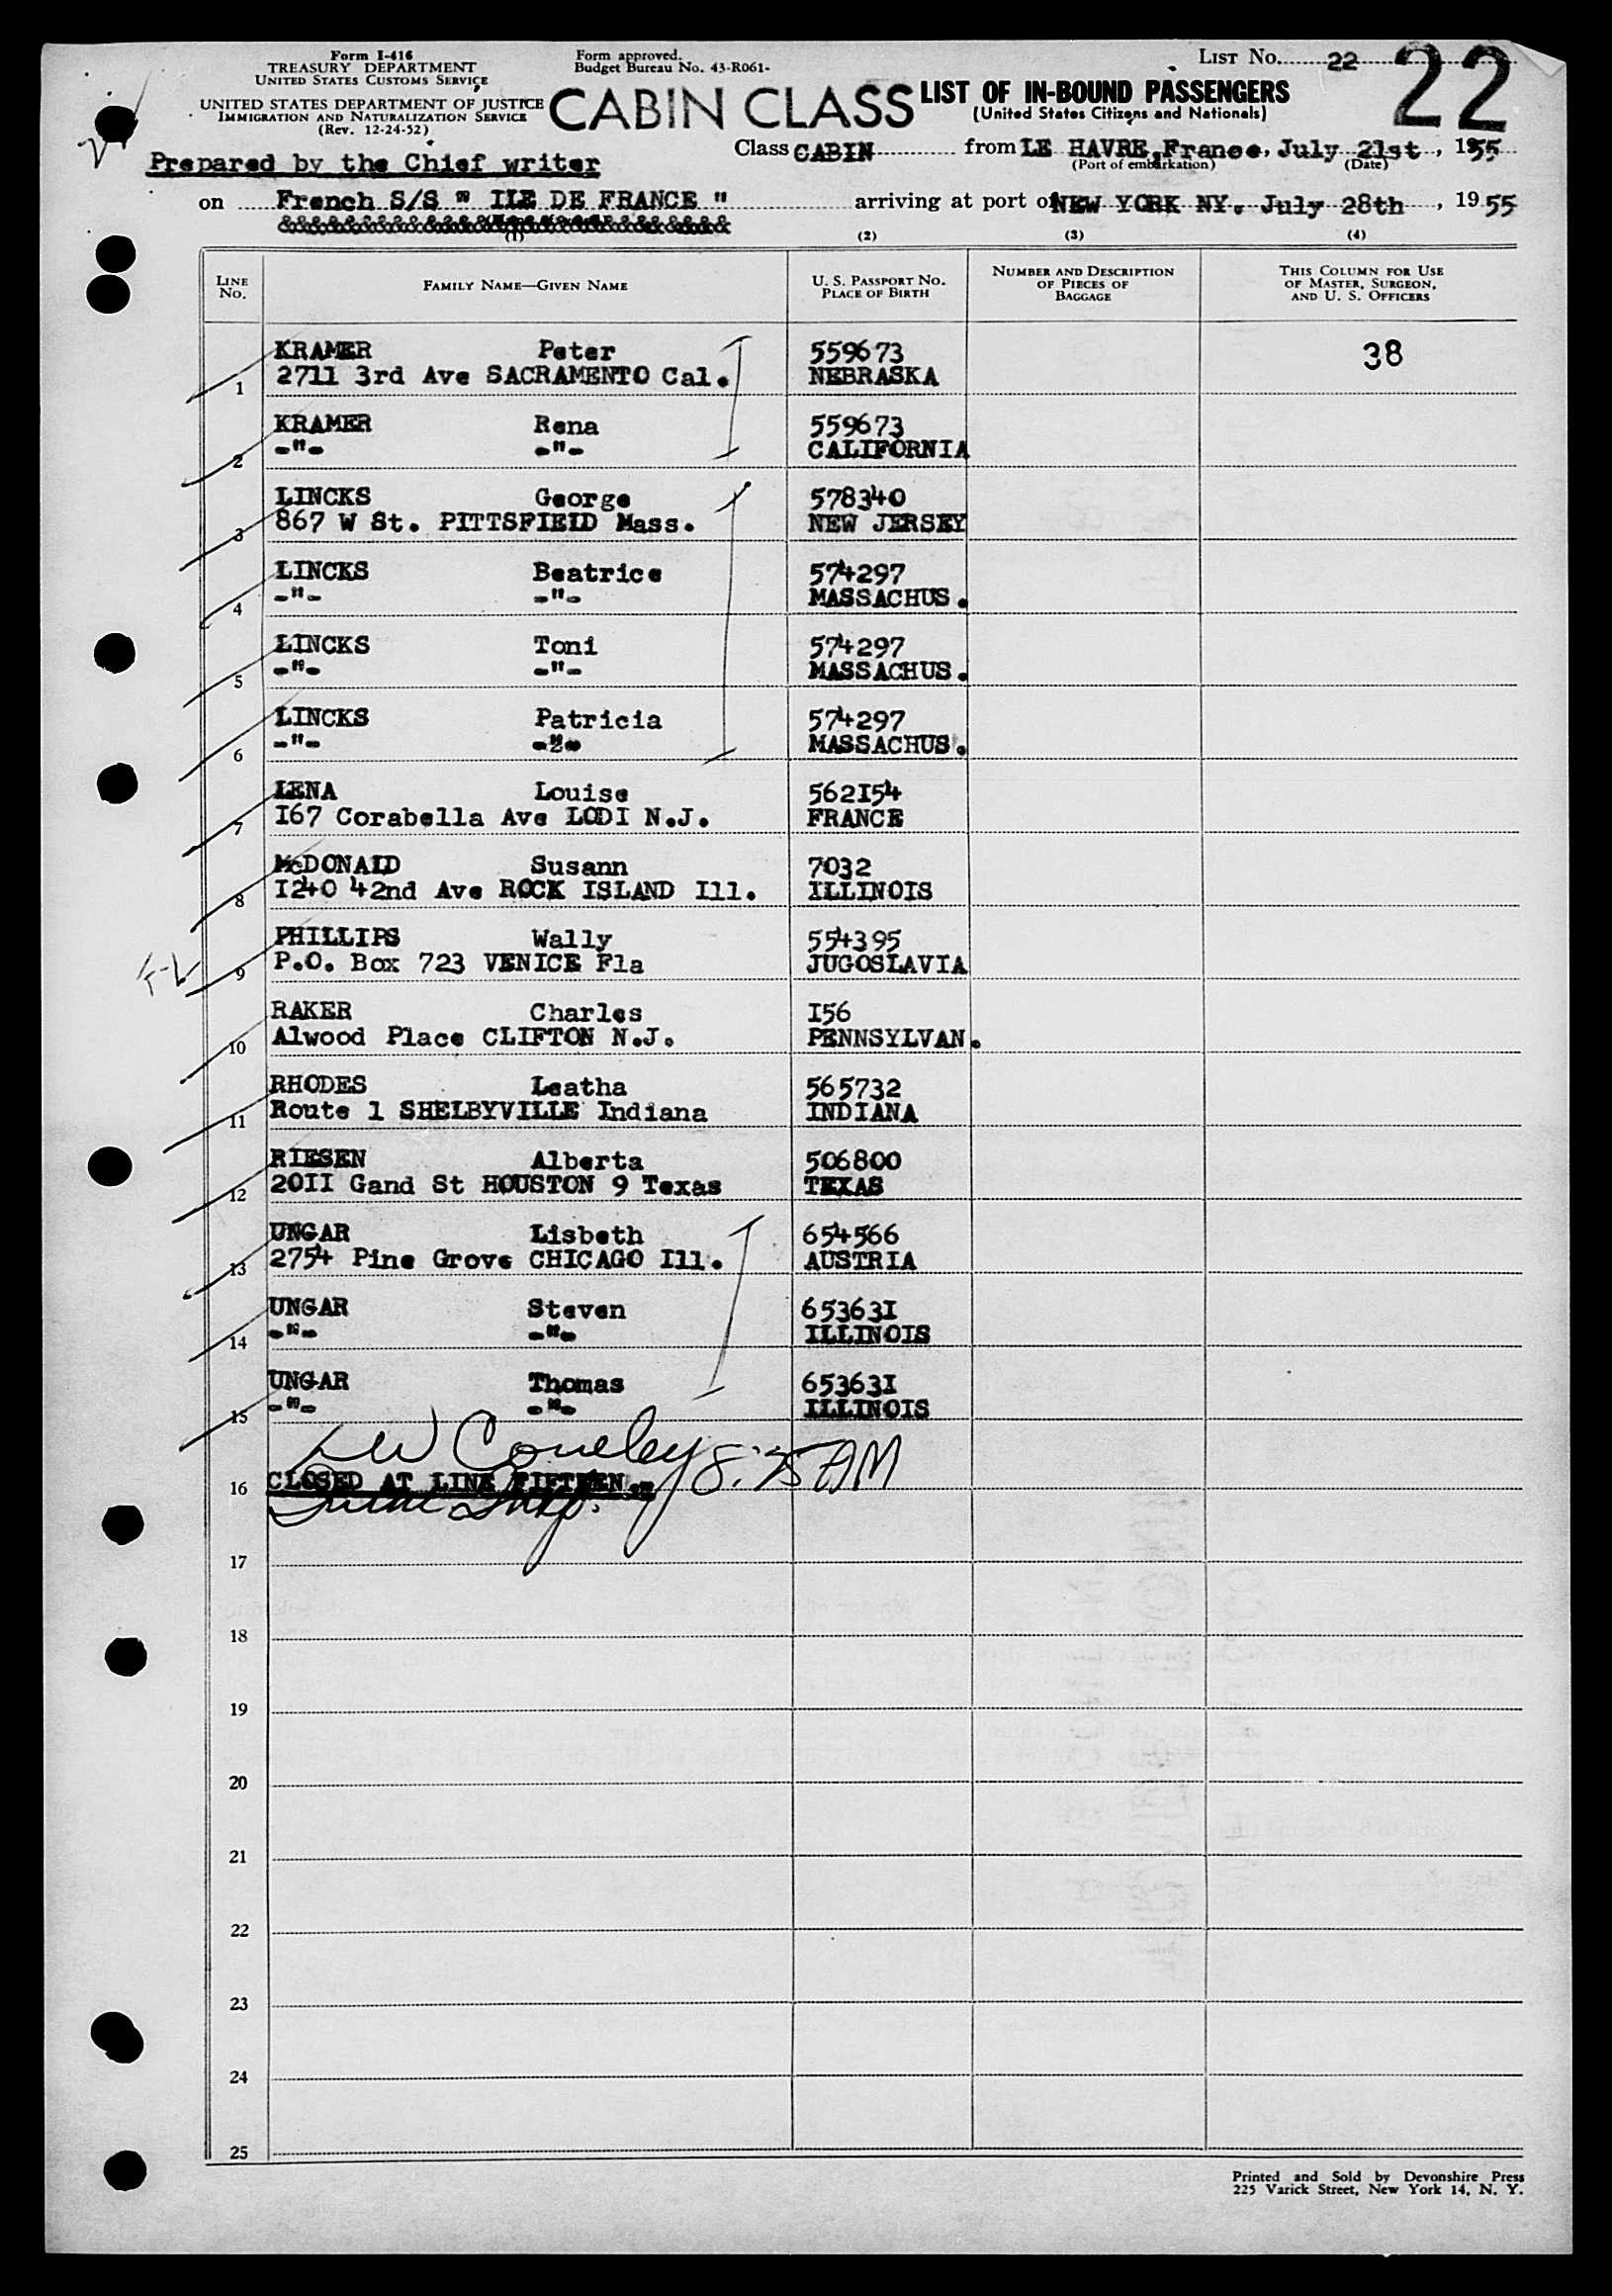 Form I-416
TREASURY DEPARTMENT
UNITED STATES CUSTOMS SERVICE
UNITED STATES DEPARTMENT OF JUSTICE
IMMIGRATION AND NATURALIZATION SERVICE
(Rev. 12-24-52)
Form approved.
Budget Bureau No. 43-R061-
CABIN CLASS
LIST No. 22
22
LIST OF IN-BOUND PASSENGERS
(United States Citizens and Nationals)
Prepared by the Chief writer
Class CABIN from LE HAVRE, France, July 21st, 1955
(Port of embarkation) (Date)
on French S/S " ILE DE FRANCE " arriving at port of NEW YORK NY. July 28th, 1955
(1) (2) (3) (4)
LINE No. FAMILY NAME—GIVEN NAME U. S. PASSPORT NO. PLACE OF BIRTH NUMBER AND DESCRIPTION OF PIECES OF BAGGAGE THIS COLUMN FOR USE OF MASTER, SURGEON, AND U. S. OFFICERS
KRAMER Peter 559673 38
1 2711 3rd Ave SACRAMENTO Cal. NEBRASKA
KRAMER Rena 559673
2 -"- -"- CALIFORNIA
LINCKS George 578340
3 867 W St. PITTSFIEID Mass. NEW JERSEY
LINCKS Beatrice 574297
4 -"- -"- MASSACHUS.
LINCKS Toni 574297
5 -"- -"- MASSACHUS.
LINCKS Patricia 574297
6 -"- -"- MASSACHUS.
LENA Louise 562I54
7 I67 Corabella Ave LODI N.J. FRANCE
McDONALD Susann 7032
8 I240 42nd Ave ROCK ISLAND Ill. ILLINOIS
PHILLIPS Wally 554395
9 P.O. Box 723 VENICE Fla JUGOSLAVIA
RAKER Charles I56
10 Alwood Place CLIFTON N.J. PENNSYLVAN.
RHODES Leatha 565732
11 Route 1 SHELBYVILLE Indiana INDIANA
RIESEN Alberta 506800
12 20II Gand St HOUSTON 9 Texas TEXAS
UNGAR Lisbeth 654566
13 2754 Pine Grove CHICAGO Ill. AUSTRIA
UNGAR Steven 65363I
14 -"- -"- ILLINOIS
UNGAR Thomas 65363I
15 -"- -"- ILLINOIS
8:25 AM
16 CLOSED AT LINE FIFTEEN.-
17
18
19
20
21
22
23
24
25
Printed and Sold by Devonshire Press
225 Varick Street, New York 14, N. Y.